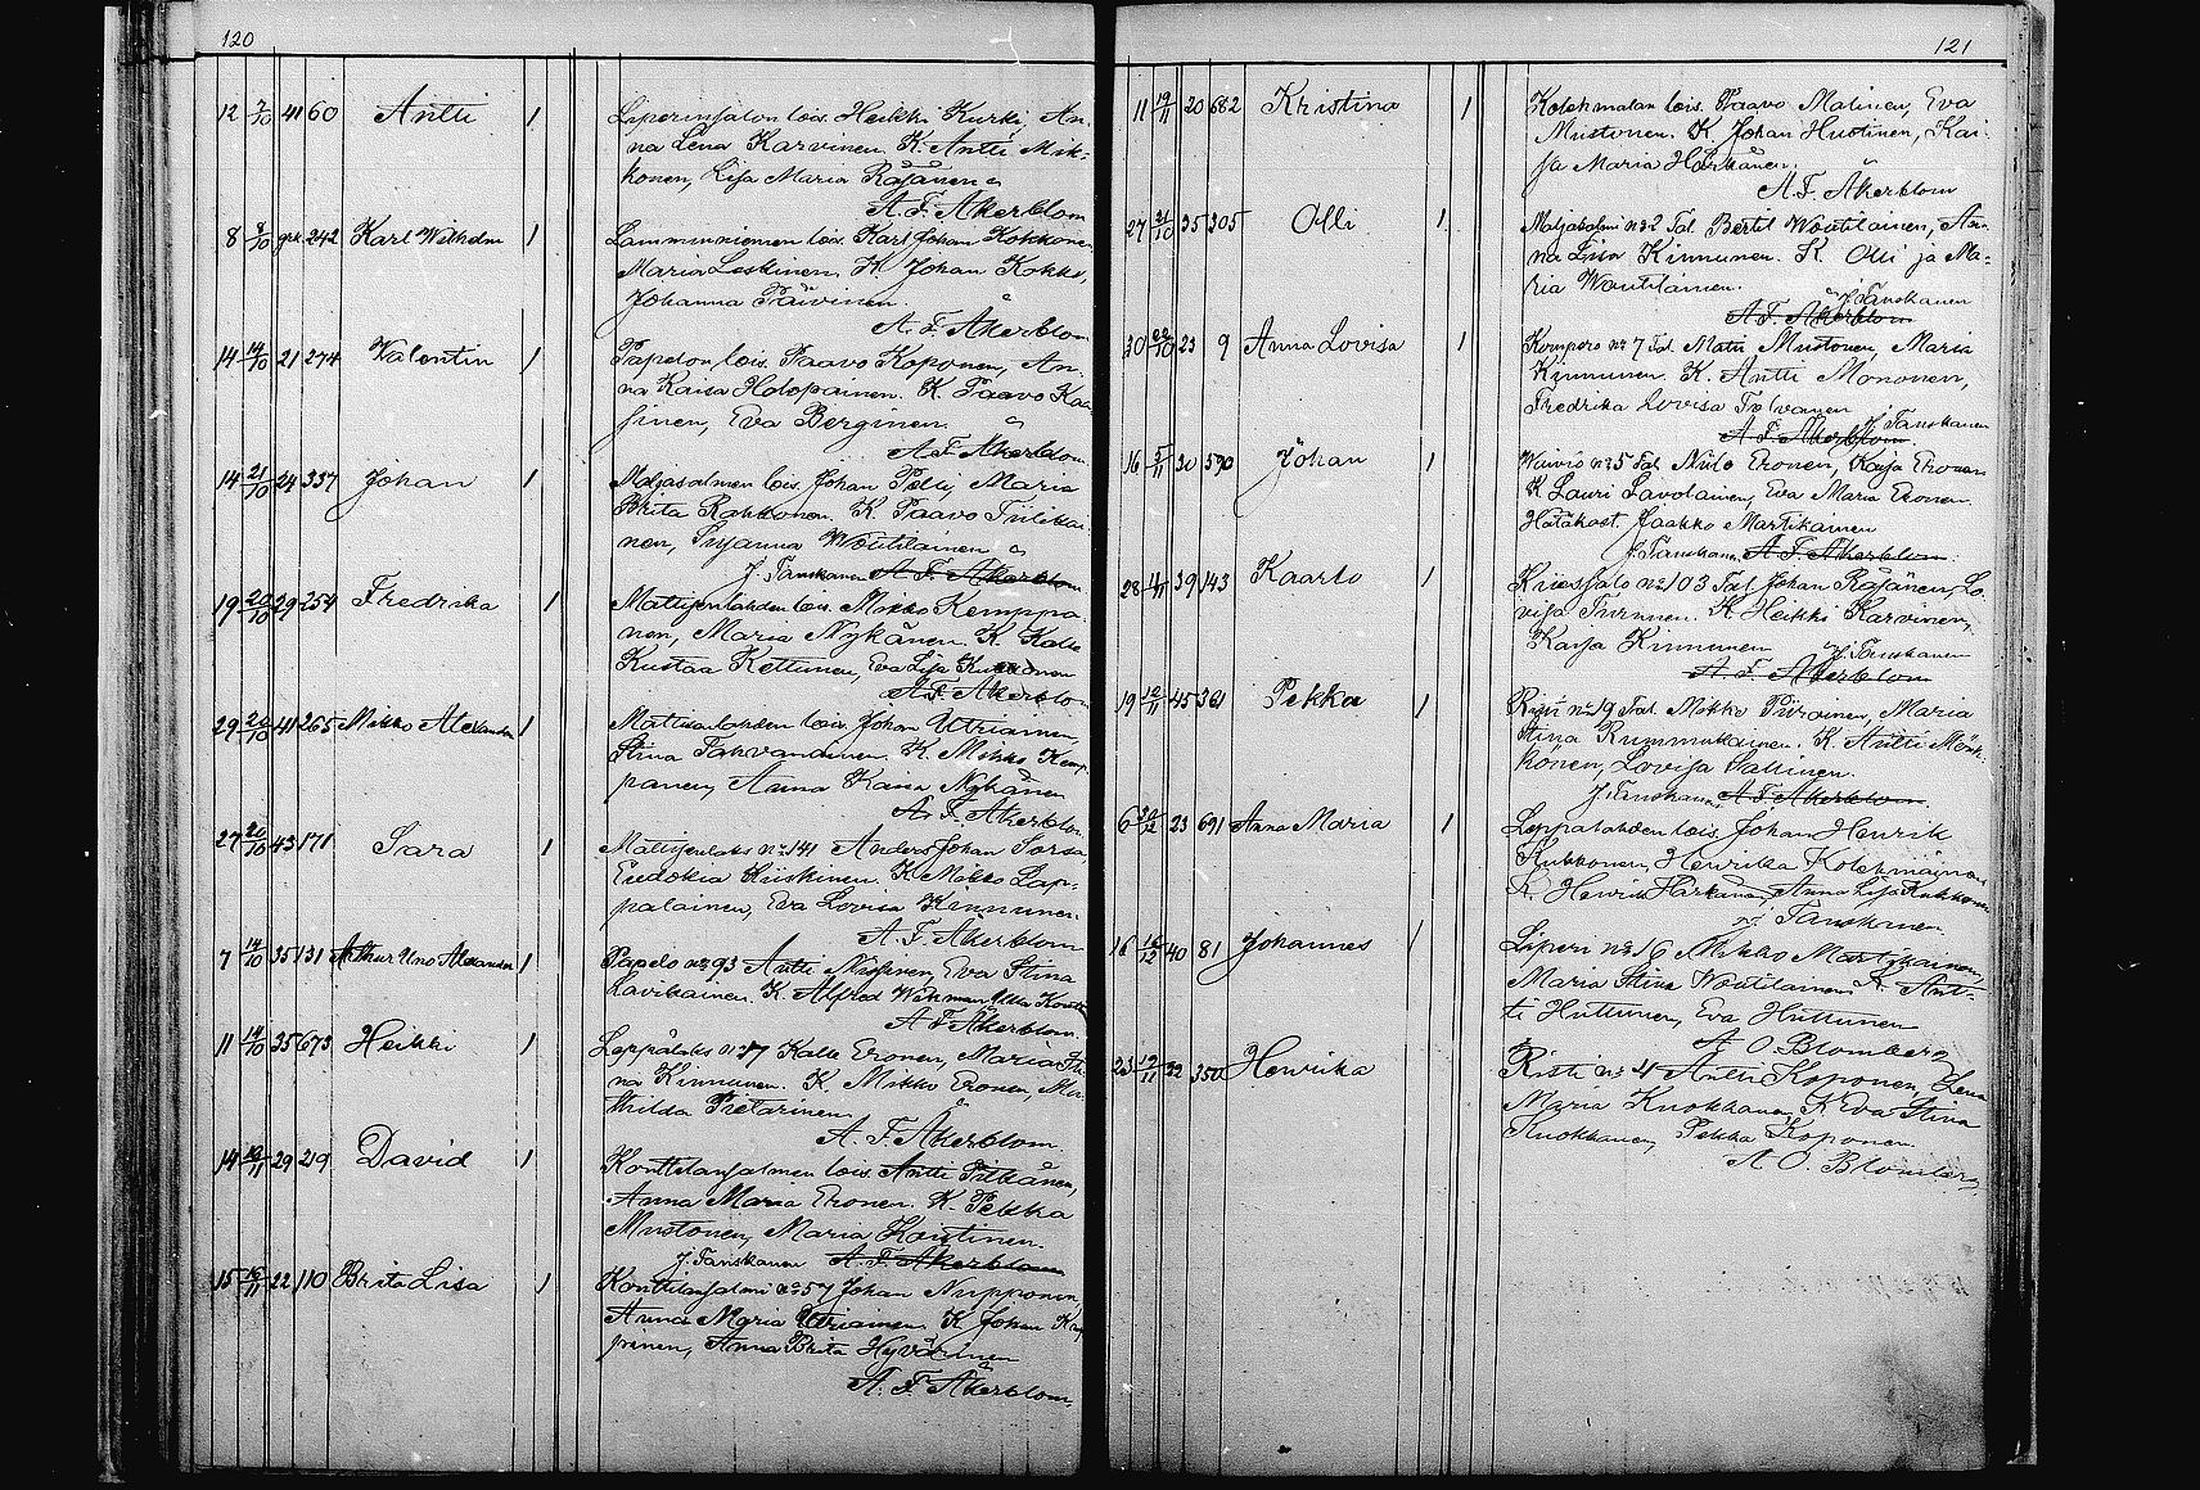 120
12 7/10 41 60 Antti 1 Liperinsalon lois. Heikki Kurki, An-
na Lena Karvinen. K. Antti Mik-
konen, Lisa Maria Räsänen
A. F. Åkerblom
8 8/10 grk. 242 Karl Wilhelm 1 Lamminniemen lois. Karl Johan Kokkonen
Maria Leskinen. K. Johan Kokko,
Johanna Päivinen.
A. F. Åkerblom
14 14/10 21 274 Valentin 1 Papelon lois. Paavo Koponen, An-
na Kaisa Holopainen. K. Paavo
sinen, Eva Berginen.
A. F. Åkerblom
14 21/10 24 337 Johan 1 Maljasalmen lois. Johan Pelli, Maria
Brita Rahkonen. K. Paavo Tiilikai-
nen, Susanna Woutilainen
J. Tanskanen A. F. Åkerblom
19 20/10 29 254 Fredrika 1 Mattisenlahden lois. Mikko Kemppa-
nen, Maria Nykänen. K. Kalle
Kustaa Kettunen, Eva Lisa
A. F. Åkerblom
29 20/10 41 265 Mikko Alexander 1 Mattisenlahden lois. Johan Utriainen
Stina Tahvanainen. K. Mikko Kemp-
panen, Anna Kaisa Nykänen
A. F. Åkerblom
27 20/10 43 171 Sara 1 Mattisenlaks no 141 Anders Johan Sorsa,
Eudokia Kiiskinen. K. Mikko Lap-
palainen, Eva Lovisa Kinnunen.
A. F. Åkerblom
7 14/10 35 131 Arthur Uno Alexander 1 Papelo no 93 Antti Nissinen, Eva Stina
Lavikainen. K. Alfred Wikman
A F Åkerblom.
11 14/10 35 673 Heikki 1 Leppälaks no 17 Kalle Eronen, Maria Sti-
na Kinnunen. K. Mikko Eronen, Ma-
thilda Pietarinen
A. F. Åkerblom.
14 12/11 29 219 David 1 Konttilansalmen lois. Antti Pitkänen,
Anna Maria Eronen. K. Pekka
Mustonen, Maria Kontinen.
J. Tanskanen A. F. Åkerblom
15 16/11 22 110 Brita Lisa 1 Konttilansalmi no 57 Johan Nupponen
Anna Maria Utriainen. K. Johan
pinen, Anna Brita Hyvärinen
A. F. Åkerblom.
121
11 19/11 20 682 Kristina 1 Kolehmalan lois. Paavo Malinen, Eva
Mustonen. K. Johan Huotinen, Kai-
sa Maria Härkänen.
A. F. Åkerblom
27 21/10 35 305 Olli 1 Maljasalmi no 2 Tal. Bertil Woutilainen, An-
na Lisa Kinnunen. K. Olli ja Ma-
ria Woutilainen.
J. Tanskanen
A. F. Åkerblom
30 22/10 23 9 Anna Lovisa 1 Kompero no 7 Tal. Matti Mustonen, Maria
Kinnunen. K. Antti Mononen,
Fredrika Lovisa Tolvanen
J. Tanskanen
A. F. Åkerblom.
16 5/11 30 590 Johan 1 Waivio no 5 Tal. Niilo Eronen, Kaisa Eronen
K Lauri Savolainen, Eva Maria Eronen.
Hätäkast. Jaakko Martikainen
J. Tanskanen A. F. Åkerblom.
28 4/11 39 143 Kaarlo 1 Kiiessalo no 103 Tal Johan Räsänen, Lo-
visa Turunen. K. Heikki Karvinen,
Kaisa Kinnunen
J. Tanskanen
A. F. Åkerblom
19 12/11 45 361 Pekka 1 no 19 Tal. Mikko Piiroinen, Maria
Stina Rummukainen. K. Antti Mönk-
könen, Lovisa Sallinen.
J. Tanskanen A. F. Åkerblom.
6 30/12 23 691 Anna Maria 1 Leppälahden lois. Johan Henrik
Kukkonen, Henrika Kolehmainen
K. Henrik Härkänen, Anna Lisa Kukkonen
J. Tanskanen.
16 16/12 40 81 Johannes 1 Liperi no 16 Mikko Martikainen,
Maria Stina Woutilainen K. Ant-
ti Huttunen, Eva Huttunen
A. O. Blomberg
23 19/11 22 350 Henrika Risti no 4 Antti Koponen, Lena
Maria Kuokkanen, K Eva Stina
Kuokkanen, Pekka Koponen.
A. O. Blomberg.